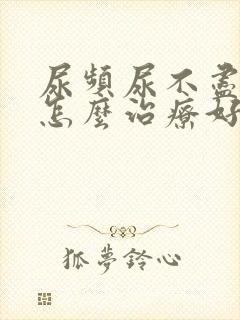 尿頻尿不盡
怎麼治療好
狐夢鈴心